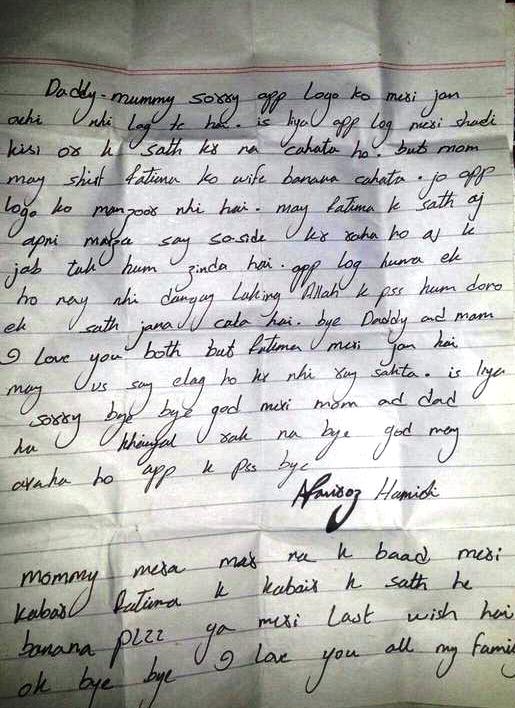 Daddy-mummy sorry app logo ko mesi jan
achi nhi log te hai. is liya app log mesi shadi
kisi or k sath kr na cahata ho. but mom
may shirf fatima ko wife banana cahata. jo app
logo ko manzoor nhi hai. may fatima k sath aj
apni marza say so-side kr raha ho aj k
jab tak hum zinda hai. app log humra ek
ho nay nhi dangay laking Allah k pss hum doro
ek sath jana cala hai. bye Daddy and mam
I love you both but fatima mesi jan hai
may us say elag ho kr nhi ray sakta. is liya
sorry bye bye god mesi mom ad dad
ka khayal rak na bye god may
araha ho app k pss bye
Hamidi
mommy mera mar na k baad mesi
kabar fatima k kabair k sath he
banana plzz ya mesi last wish hai
ok bye bye I love you all my family